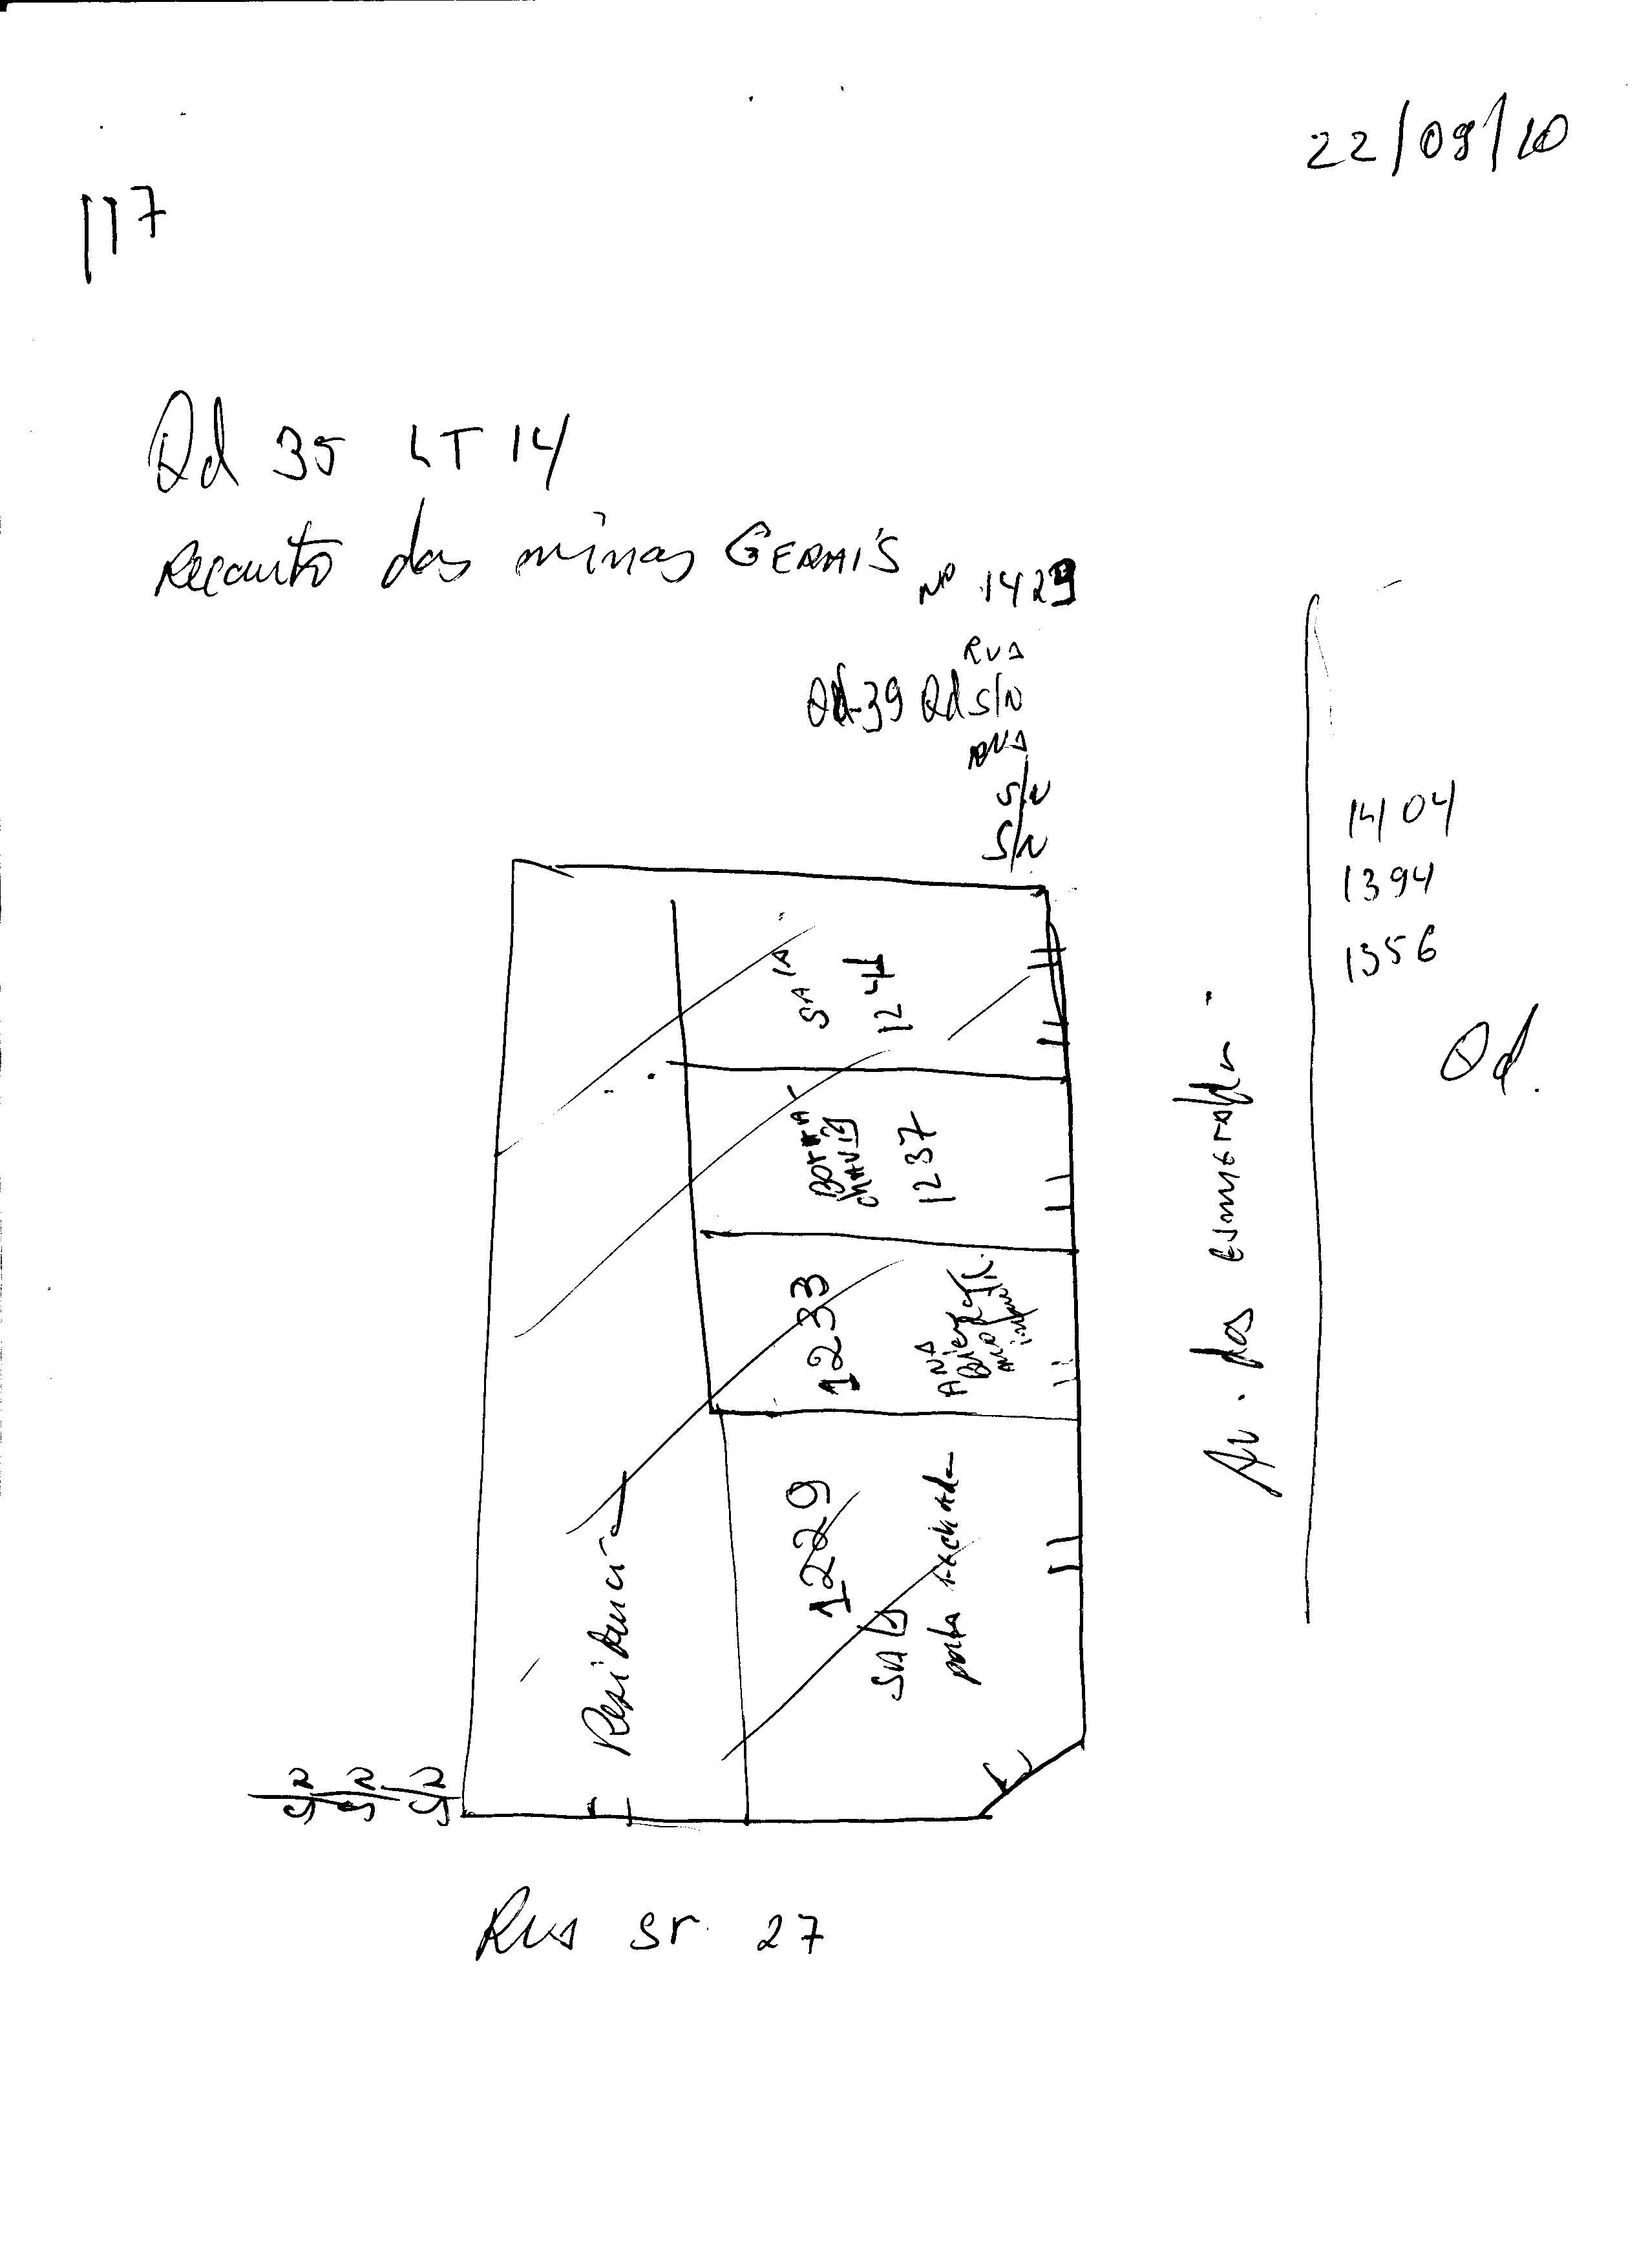 22/09/10
117
Qd 35 LT 14
Recanto das minas GERAIS
Nº 1429
RUA
Qd-39 Qd S/N
RUA
S/N
S/N
1404
1394
1356
Qd.
SALA
1241
BORRA
CHARIA
1237
1233
ANA
1229
SALA
porta fechada
Residencia
Av. das esmeralda
S/N S/N S/N
Rua Sr. 27